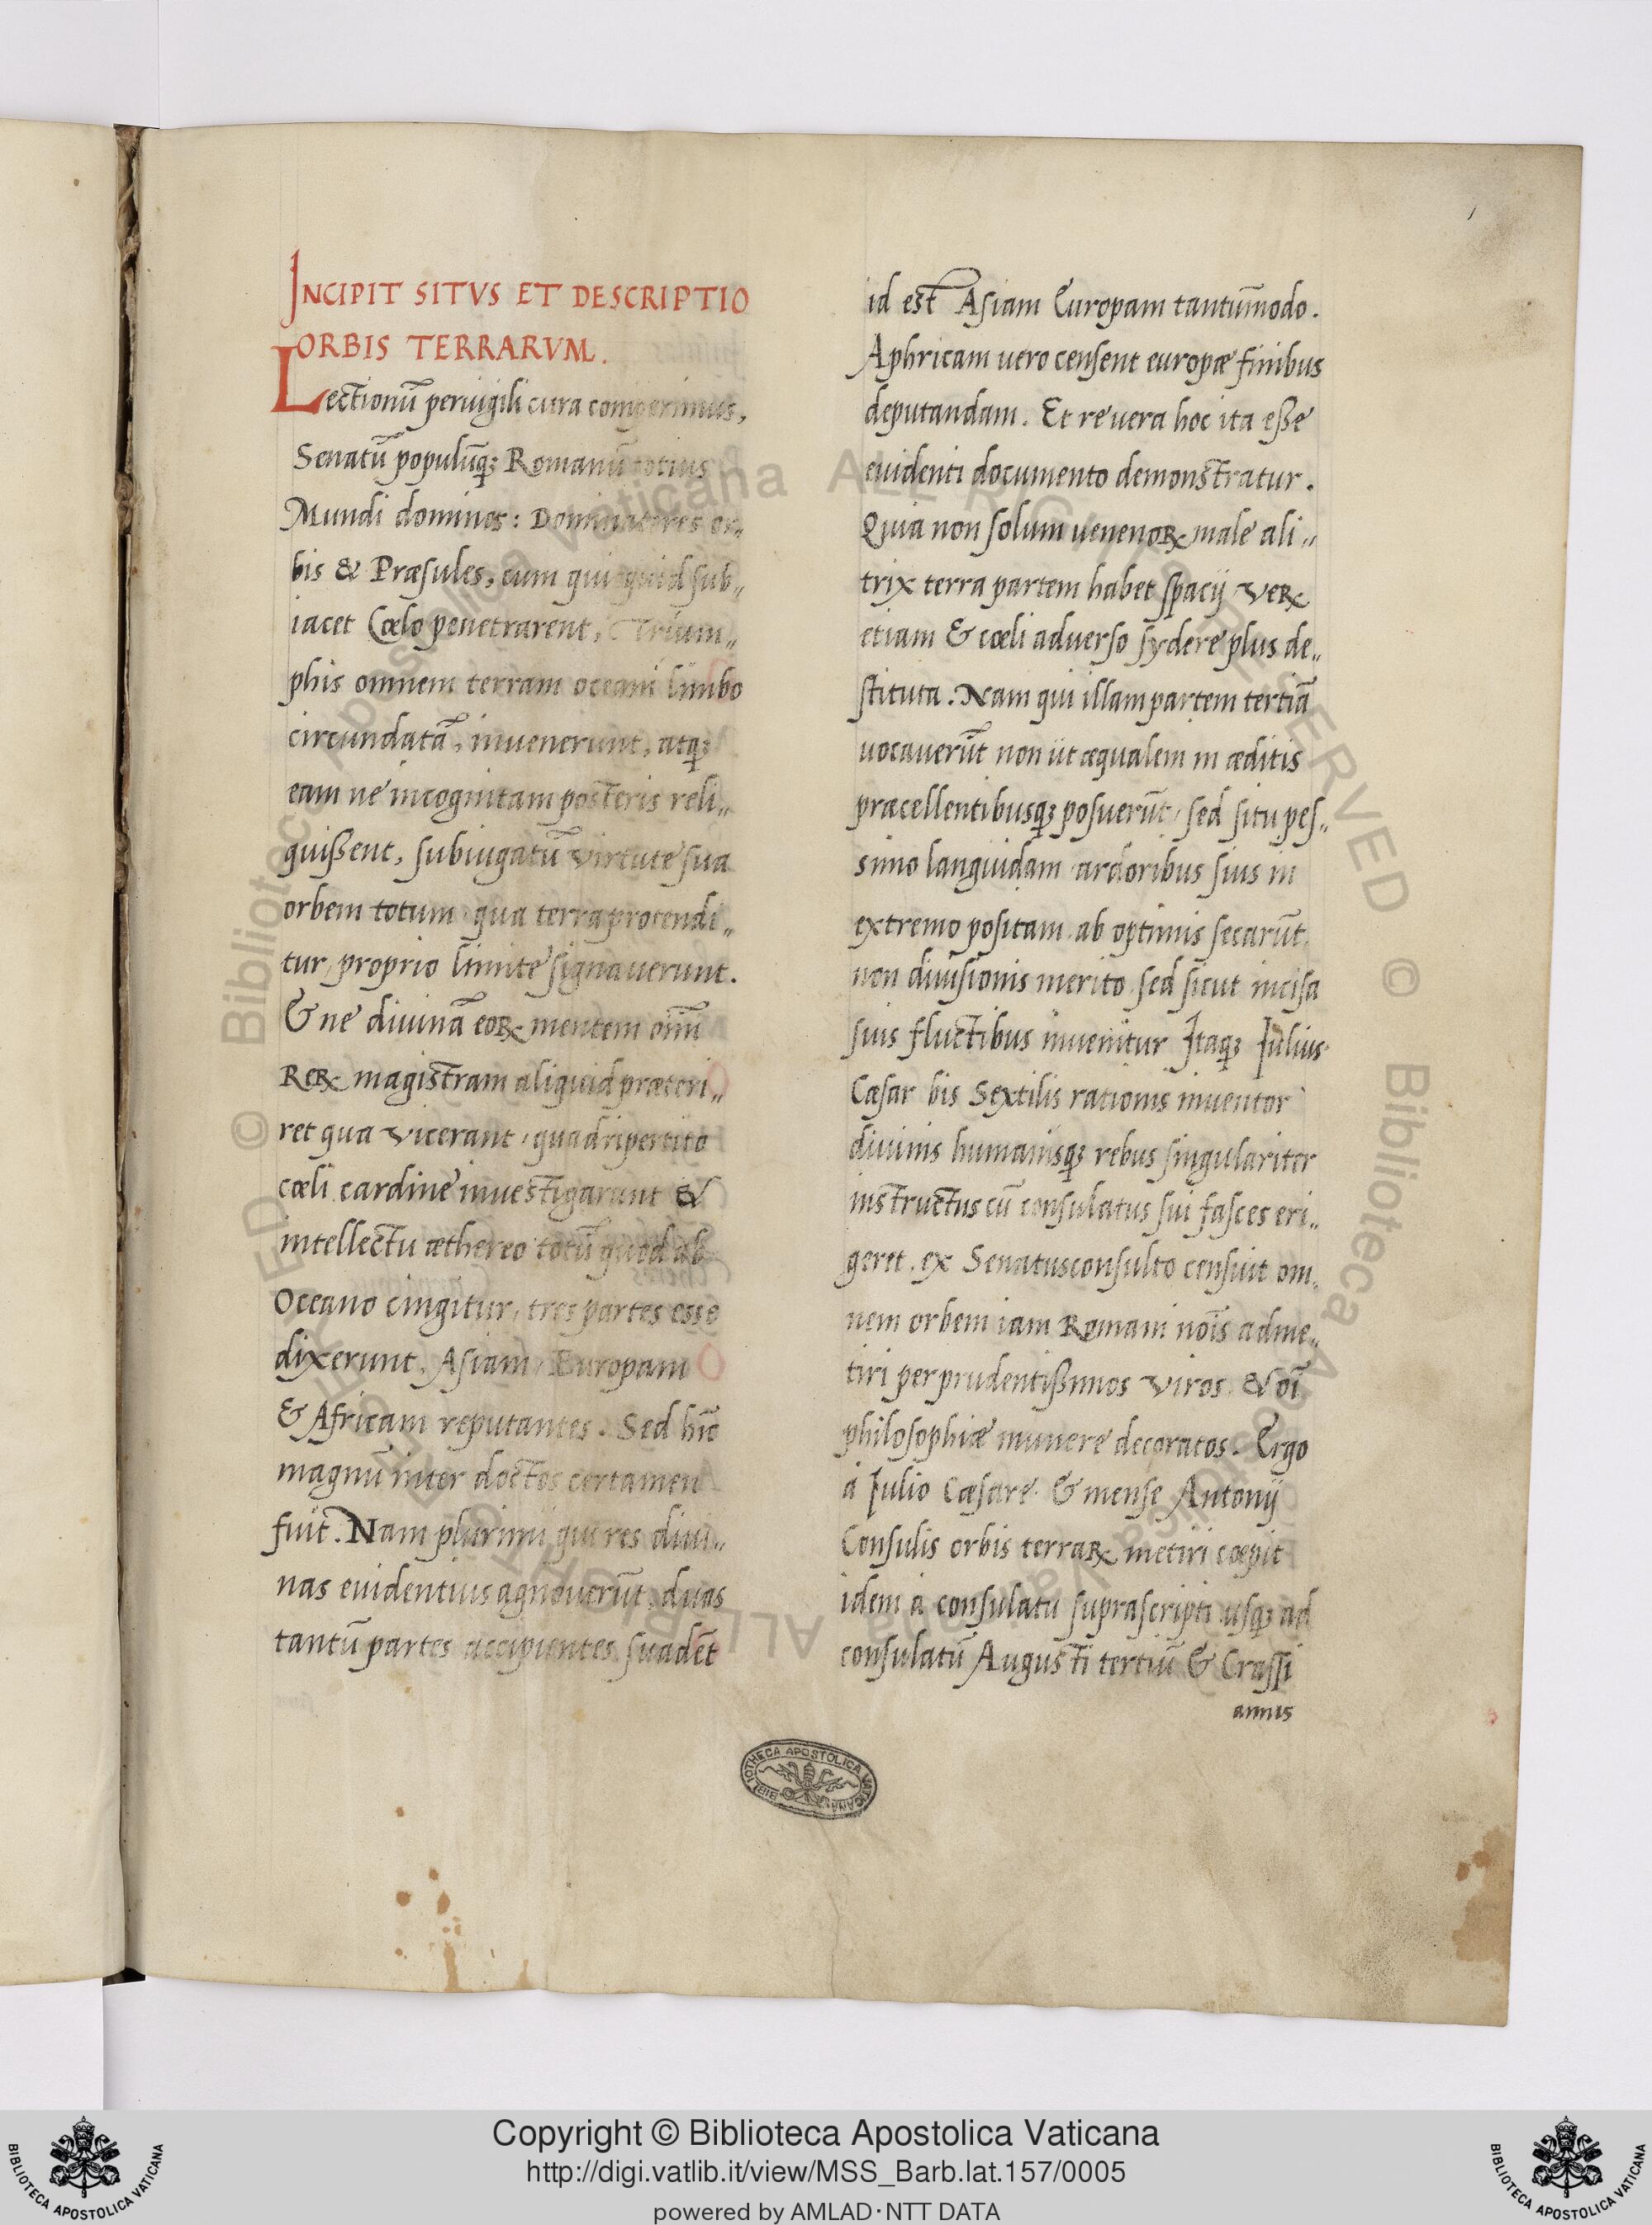 INCIPIT SITVS ET DESCRIPTIO
ORBIS TERRARVM.
Lectionũ peruigili cura comperimus,
Senatũ populũq; Romanũ totius
Mundi dominos: Dominatores or„
bis & Præsules, cum quicquid sub„
iacet Cœlo penetrarent, Trium„
phis omnem terram oceani limbo
circundatã, inuenerunt, atq;
eam ne incognitam posteris reli„
quißent, subiugatũ virtute sua
orbem totum qua terra protendi„
tur, proprio limite signauerunt.
& ne diuinã eoꝝ mentem omĩ
Reꝝ magistram aliquid præteri„
ret qua vicerant, quadripertito
cœli cardine inuestigarunt &
intellectu æthereo totũ quod ab
Oceano cingitur, tres partes esse
dixerunt, Asiam, Europam
& Africam reputantes. Sed hĩc
magnũ inter doctos certamen
fuit. Nam plurimi qui res diui„
nas euidentius agnouerũt, duas
tantũ partes accipientes suadẽt
id est Asiam Europam tantũmodo.
Aphricam uero censent europæ finibus
deputandam. Et re uera hoc ita eße
euidenti documento demonstratur.
Quia non solum uenenoꝝ male ali„
trix terra partem habet spacij veꝝ
etiam & cœli aduerso sydere plus de„
stituta. Nam qui illam partem tertiã
uocauerũt non ut æqualem in æditis
præcellentibusq; posuerũt, sed situ pes„
simo languidam ardoribus suis in
extremo positam ab optimis secarũt,
non diuisionis merito sed sicut incisa
suis fluctibus inuenitur Itaq; Iulius
Cæsar bis Sextilis rationis inuentor
diuinis humanisq; rebus singulariter
instructus cũ consulatus sui fasces eri„
geret. ex Senatusconsulto censuit om„
nem orbem iam Romani nõis adme„
tiri per prudentißimos viros, & oĩ
philosophiæ munere decoratos. Ergo
à Iulio Cæsare & mense Antonij
Consulis orbis terraꝝ metiri cœpit
idem à consulatu suprascripti usq; ad
consulatũ Augusti tertiũ & Crassi
annis
BIBLIOTHECA APOSTOLICA VATICANA
© Biblioteca Apostolica Vaticana ALL RIGHTS RESERVED © Biblioteca Apostolica Vaticana ALL RIGHTS RESERVED
Copyright © Biblioteca Apostolica Vaticana
http://digi.vatlib.it/view/MSS_Barb.lat.157/0005
powered by AMLAD·NTT DATA
BIBLIOTECA APOSTOLICA VATICANA
BIBLIOTECA APOSTOLICA VATICANA